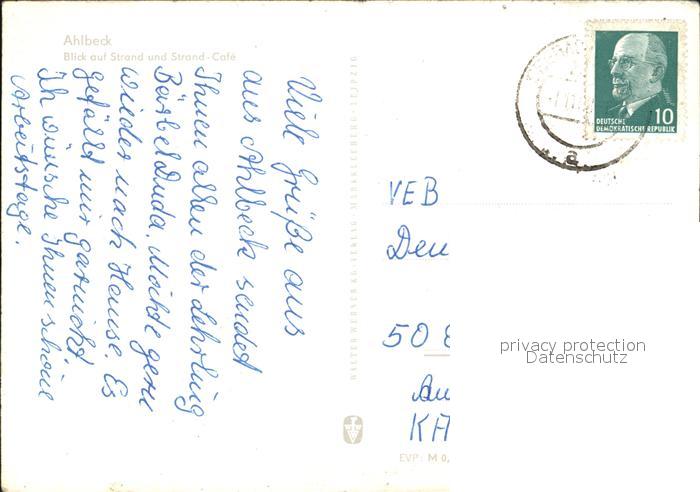 Ahlbeck
Blick auf Strand und Strand-Café
Viele Grüße aus
aus Ahlbeck sendet
Ihnen allen der Lehrling
Bärbel Duda. Möchte gern
wieder nach Hause. Es
gefällt mir garnicht.
Ich wünsche Ihnen schöne
Arbeitstage.
DEUTSCHE
DEMOKRATISCHE REPUBLIK
10
a
VEB
Den
50
KA
EVP: M 0,
privacy protection
Datenschutz